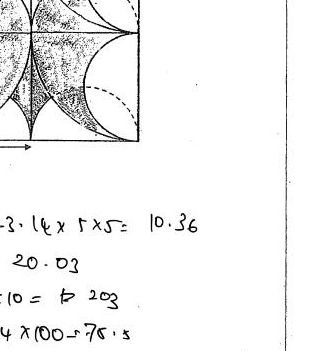 -3.14 x 5 x 5 = 10.36
20.03
x10 = 203
4 x 100 = 78.5